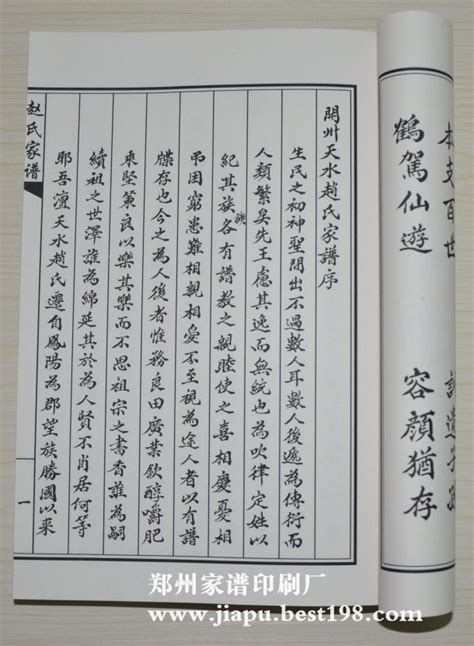 本支百世
鶴駕仙遊
容顏猶存
開州天水趙氏家譜序
生民之初神聖間出不過數人耳數人後遞為傳衍而
人類繁矣先王慮其逸而無統也為吹律定姓以
紀其族族各有譜教之親睦使之喜相慶憂相
弔困窮患難相親相愛不至視為途人者以有譜
牒存也今之為人後者惟務良田廣業飲醇嚼肥
乘堅策良以樂其樂而不思祖宗之書香誰為嗣
續祖之世澤誰為綿延其於為人賢不肖居何等
耶吾澶天水趙氏遷自鳳陽為郡望族勝國以來
赵氏家谱
一
郑州家谱印刷厂
www.jiapu.best198.com